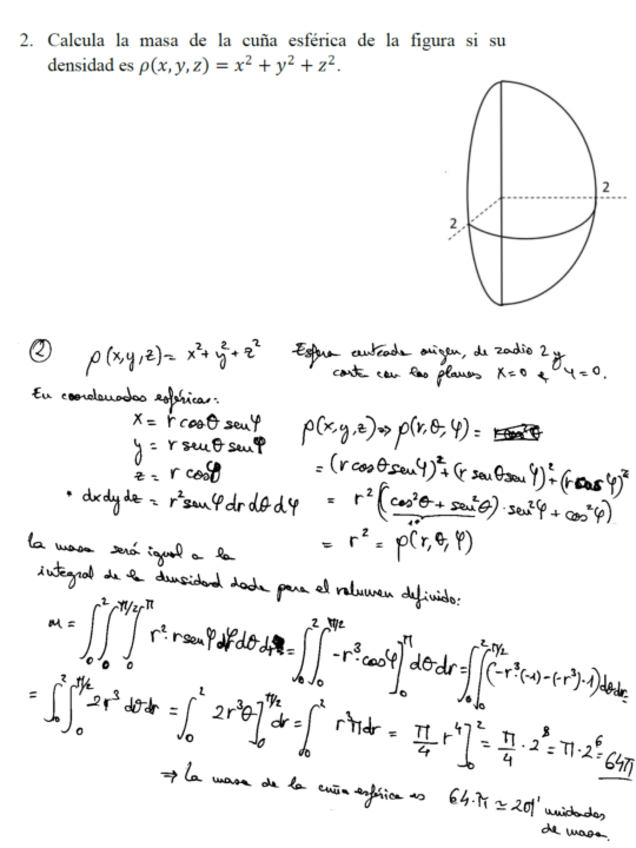 2. Calcula la masa de la cuña esférica de la figura si su
densidad es ρ(x, y, z) = x² + y² + z².
2
2
② ρ(x,y,z) = x² + y² + z² Esfera centrada origen, de radio 2 y
corte con los planos x=0 e y=0.
En coordenadas esféricas:
x = r cosθ senφ
y = r senθ senφ
z = r cosφ
• dx dy dz = r² senφ dr dθ dφ
ρ(x,y,z) => ρ(r,θ,φ) =
= (r cosθ senφ)² + (r senθ senφ)² + (r cos φ)²
= r² (cos²θ + sen²θ) · sen²φ + cos²φ)
= r² = ρ(r,θ,φ)
la masa será igual a la
integral de la densidad dada para el volumen definido:
m = ∫₀² ∫₀^π/2 ∫₀^π r² · r senφ dφ dθ dr = ∫₀² ∫₀^π/2 -r³ · cosφ]₀^π dθ dr = ∫₀² ∫₀^π/2 (-r³·(-1) - (-r³)·1) dθ dr =
= ∫₀² ∫₀^π/2 2r³ dθ dr = ∫₀² 2r³θ]₀^π/2 dr = ∫₀² r³π dr = π/4 r⁴]₀² = π/4 · 2⁸ = π · 2⁶ = 64π
⇒ La masa de la cuña esférica es 64·π ≃ 201' unidades
de masa.